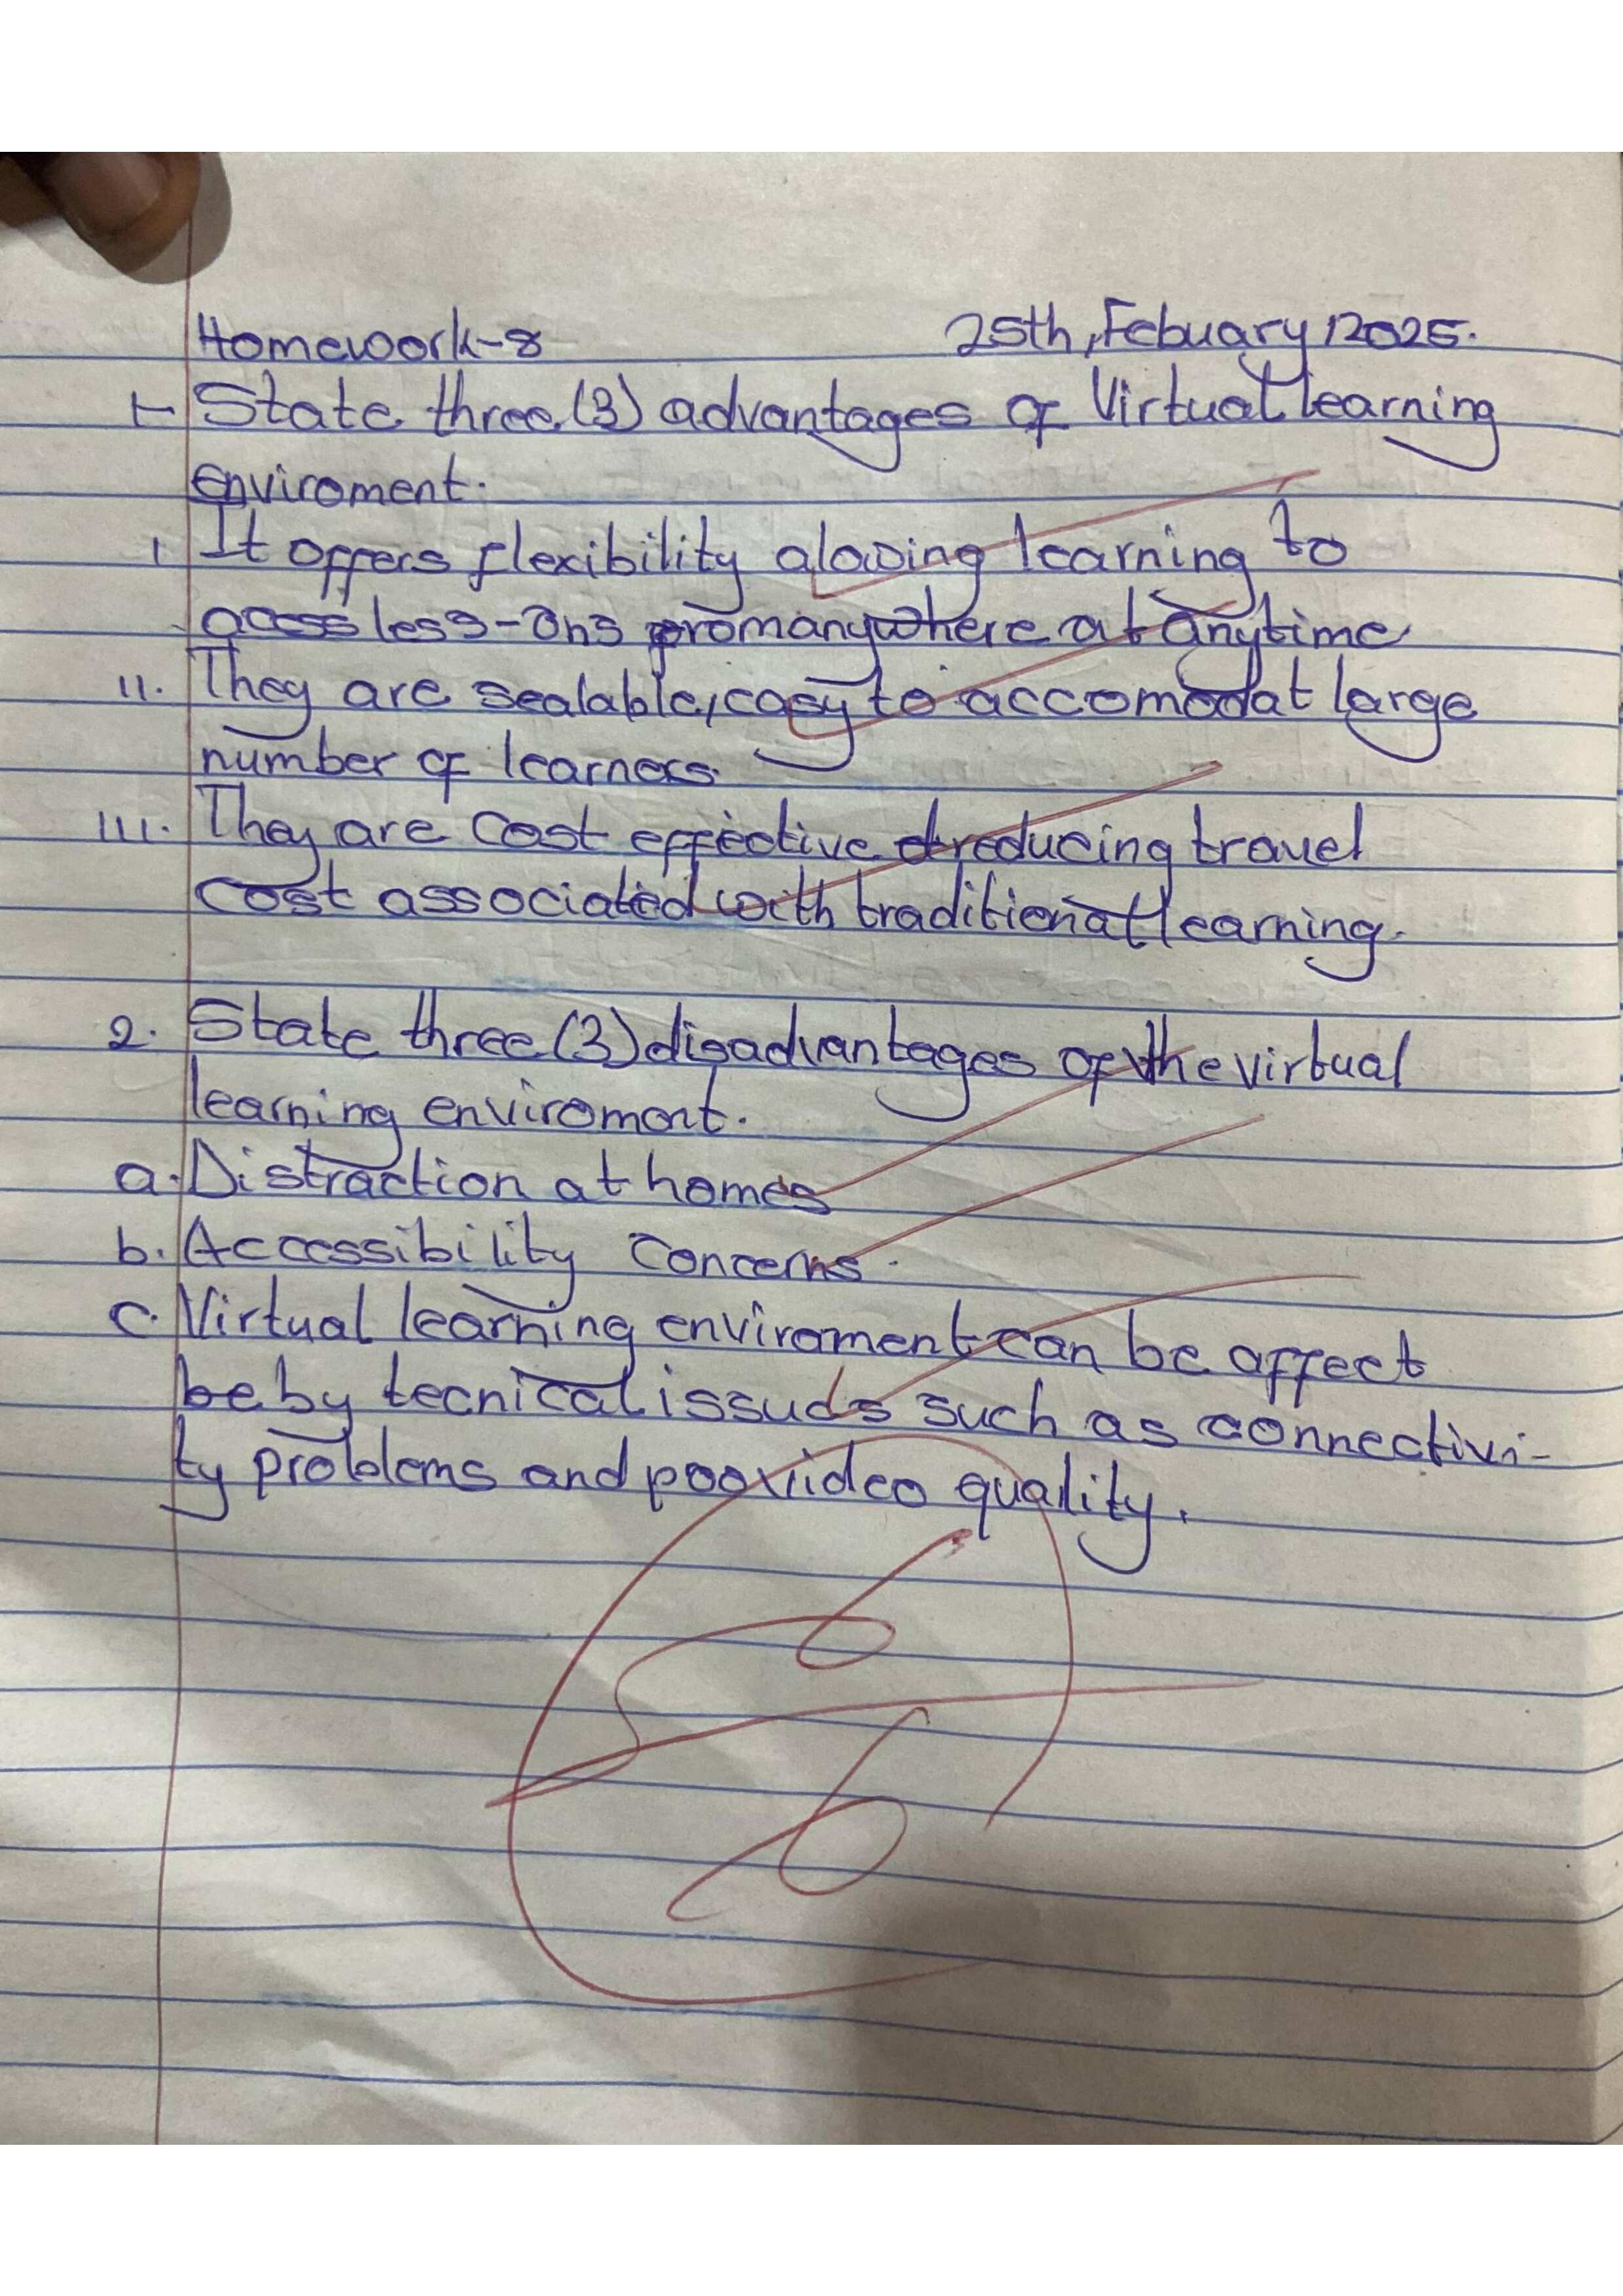 Homework-8 25th, Febuary 12025.
1- State three (3) advantages of Virtual learning
enviroment.
i It offers flexibility alowing learning to
acess less-ons from anywhere at anytime
ii. They are sealable, easy to accomodat large
number of learners.
iii. They are cost effective reducing travel
cost associated with traditional learning.
2. State three (3) disadvantages of the virtual
learning enviroment.
a. Distraction at homes
b. Accessibility concerns.
c. Virtual learning enviroment can be affect
be by tecnical issues such as connectivi-
ty problems and poor video quality.
6
6